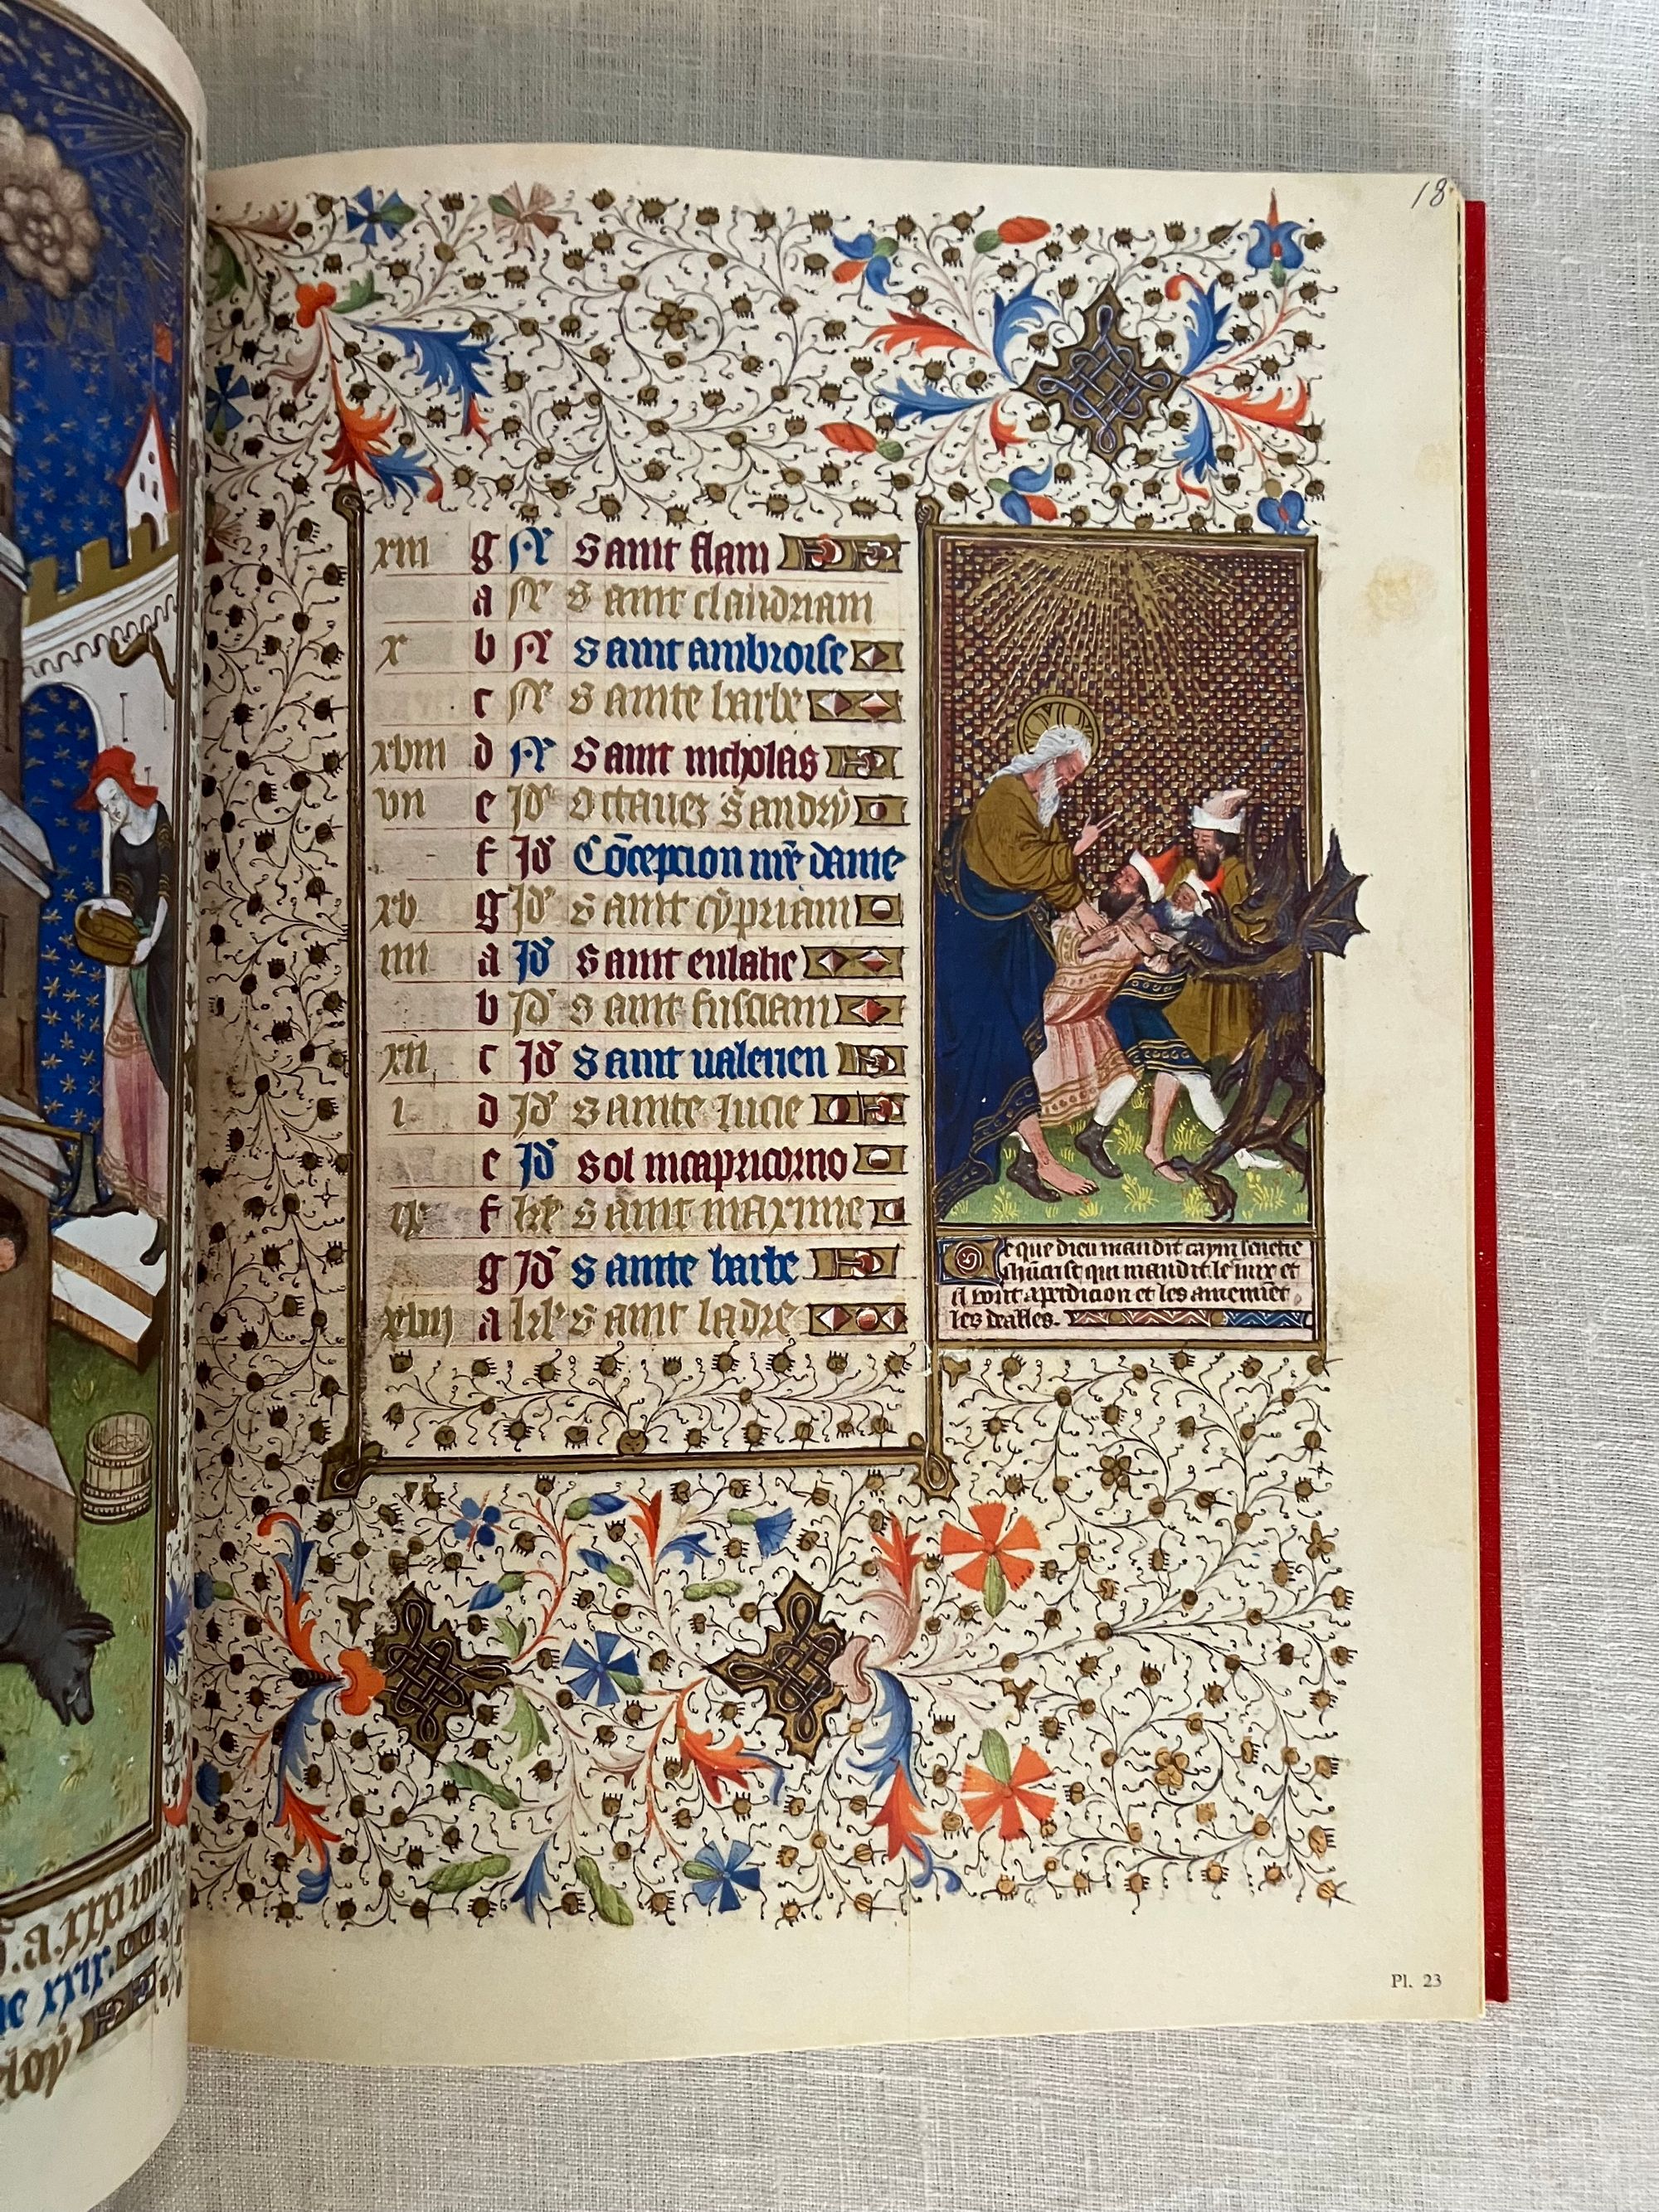 18
xiii g N Saint flam
a N Saint claudriam
x b N Saint ambroise
c N Sainte barbe
xviii d N Saint nicholas
vii e Id Octaues s. andry
f Id Cōception nr̄e dame
xv g Id Saint cypriam
iiii a Id Saint eulalie
b Id Saint fusciam
xii c Id Saint ualerien
i d Id Sainte lucie
e Id Sol in capricorno
ix f kl Saint maxime
g Id Sainte barbe
xvii a kl Saint ladre
Ce que dieu maudit caym senefie
ihūcrist qui maudit le iuix et
il vont a perdicion et les
les deables.
a.xxxi
xxix.
eloy
Pl. 23